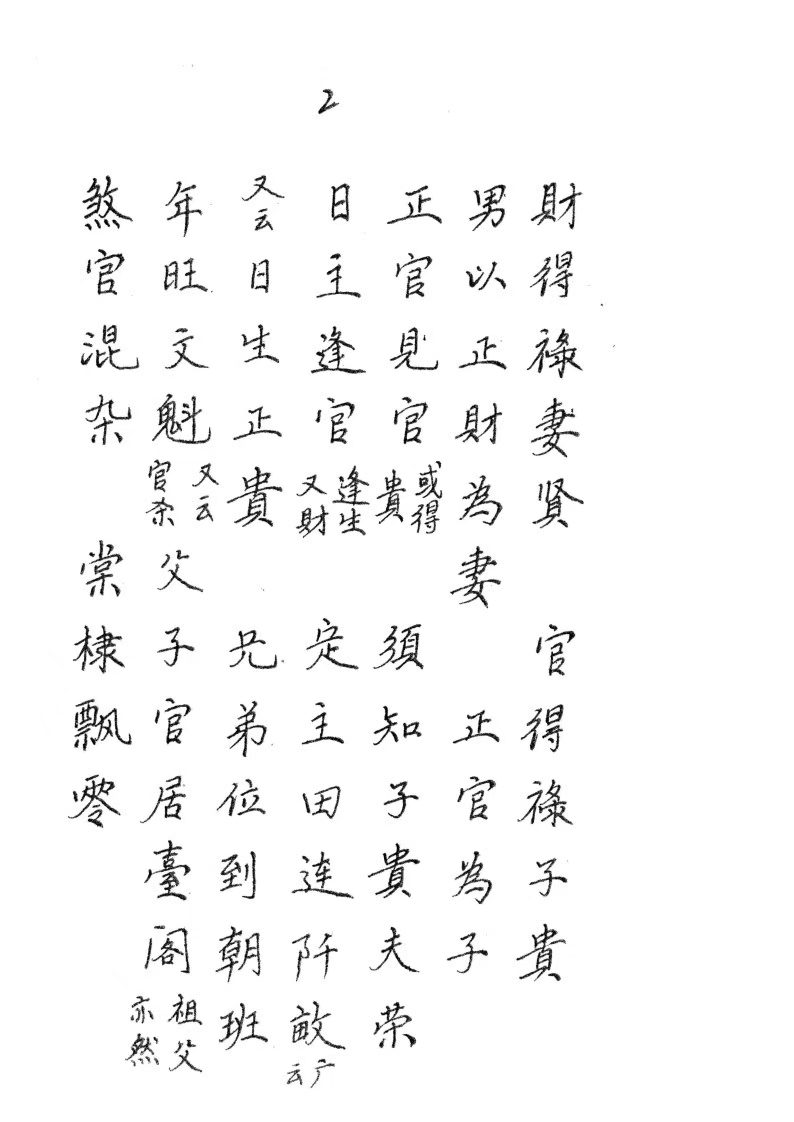 2
財得祿妻賢 官得祿子貴
男以正財為妻 正官為子
正官見官或得貴 須知子貴夫荣
日主逢官逢生又財 定主田連阡畝广云
又云日生正貴 兄弟位到朝班
年旺文魁又云官杀 父子官居臺阁祖父亦然
煞官混杂 棠棣飘零